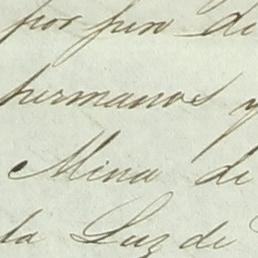 por 
hermanos y
Mina de
la Luz de